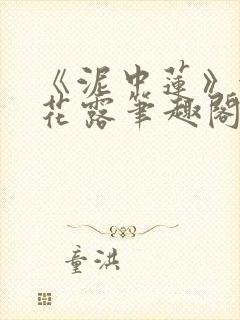 《泥中莲》
花露笔趣阁
童洪